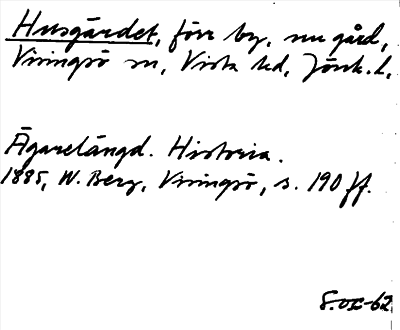 Husgärdet, förr by, nu gård,
Visingsö sn, Vista hd, Jönk. l,
Ägarelängd. Historia.
1885, W. Berg, Visingsö, s. 190 ff.
-62